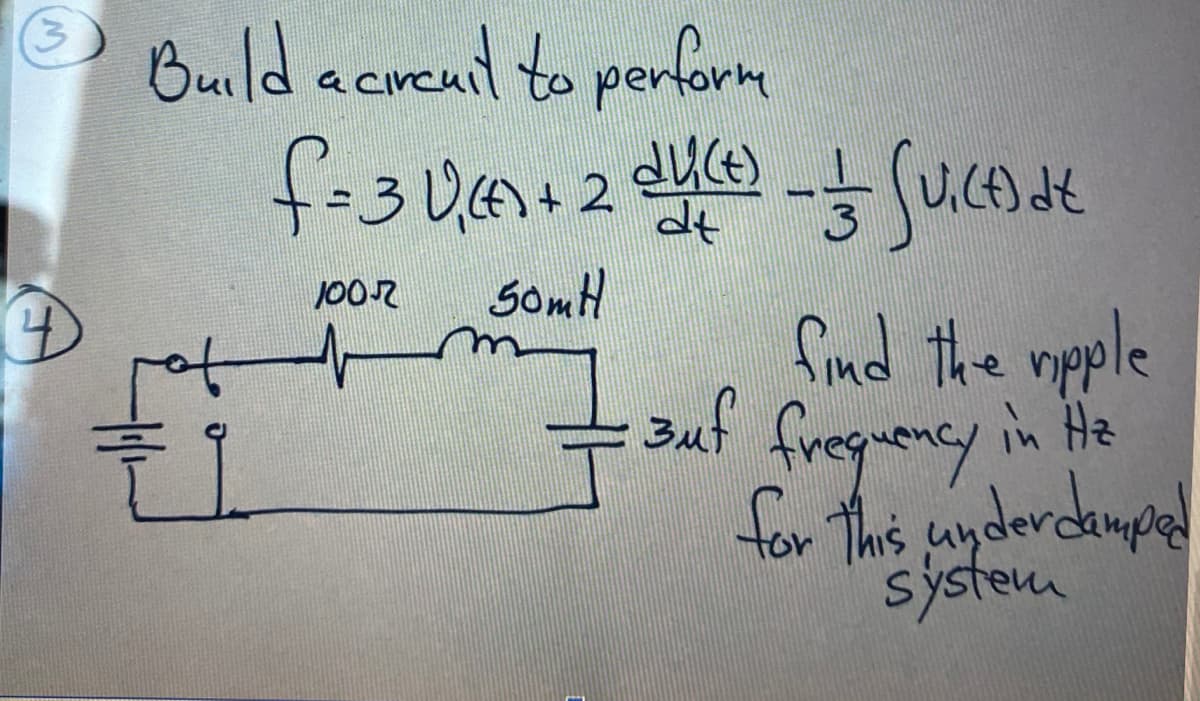 3 Build a circuit to perform
f = 3 V₁(t) + 2 dV₁(t)/dt - 1/3 ∫ V₁(t) dt
4 100Ω 50mH
find the ripple
3uf frequency in Hz
for this underdamped
system